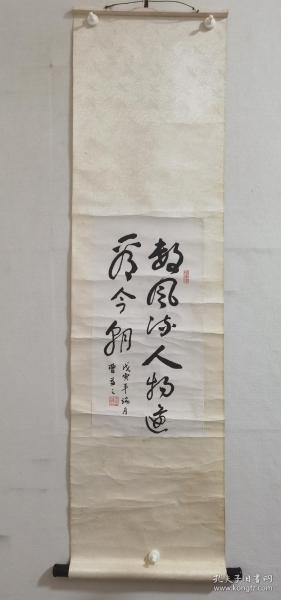 数风流人物还
看今朝
戊寅年
月
孔夫子旧书网